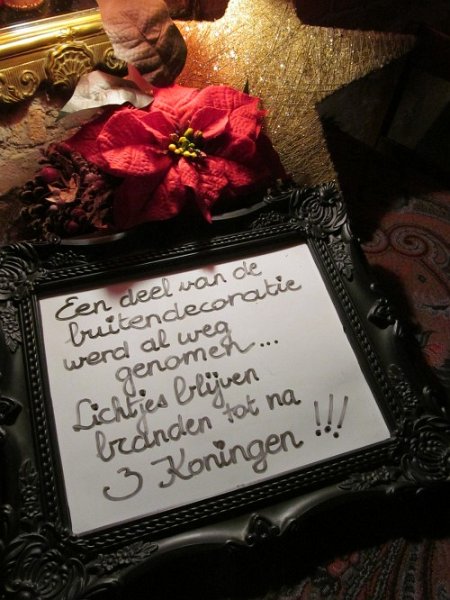 Een deel van de
buitendecoratie
werd al weg
genomen...
Lichtjes blijven
branden tot na
3 Koningen !!!